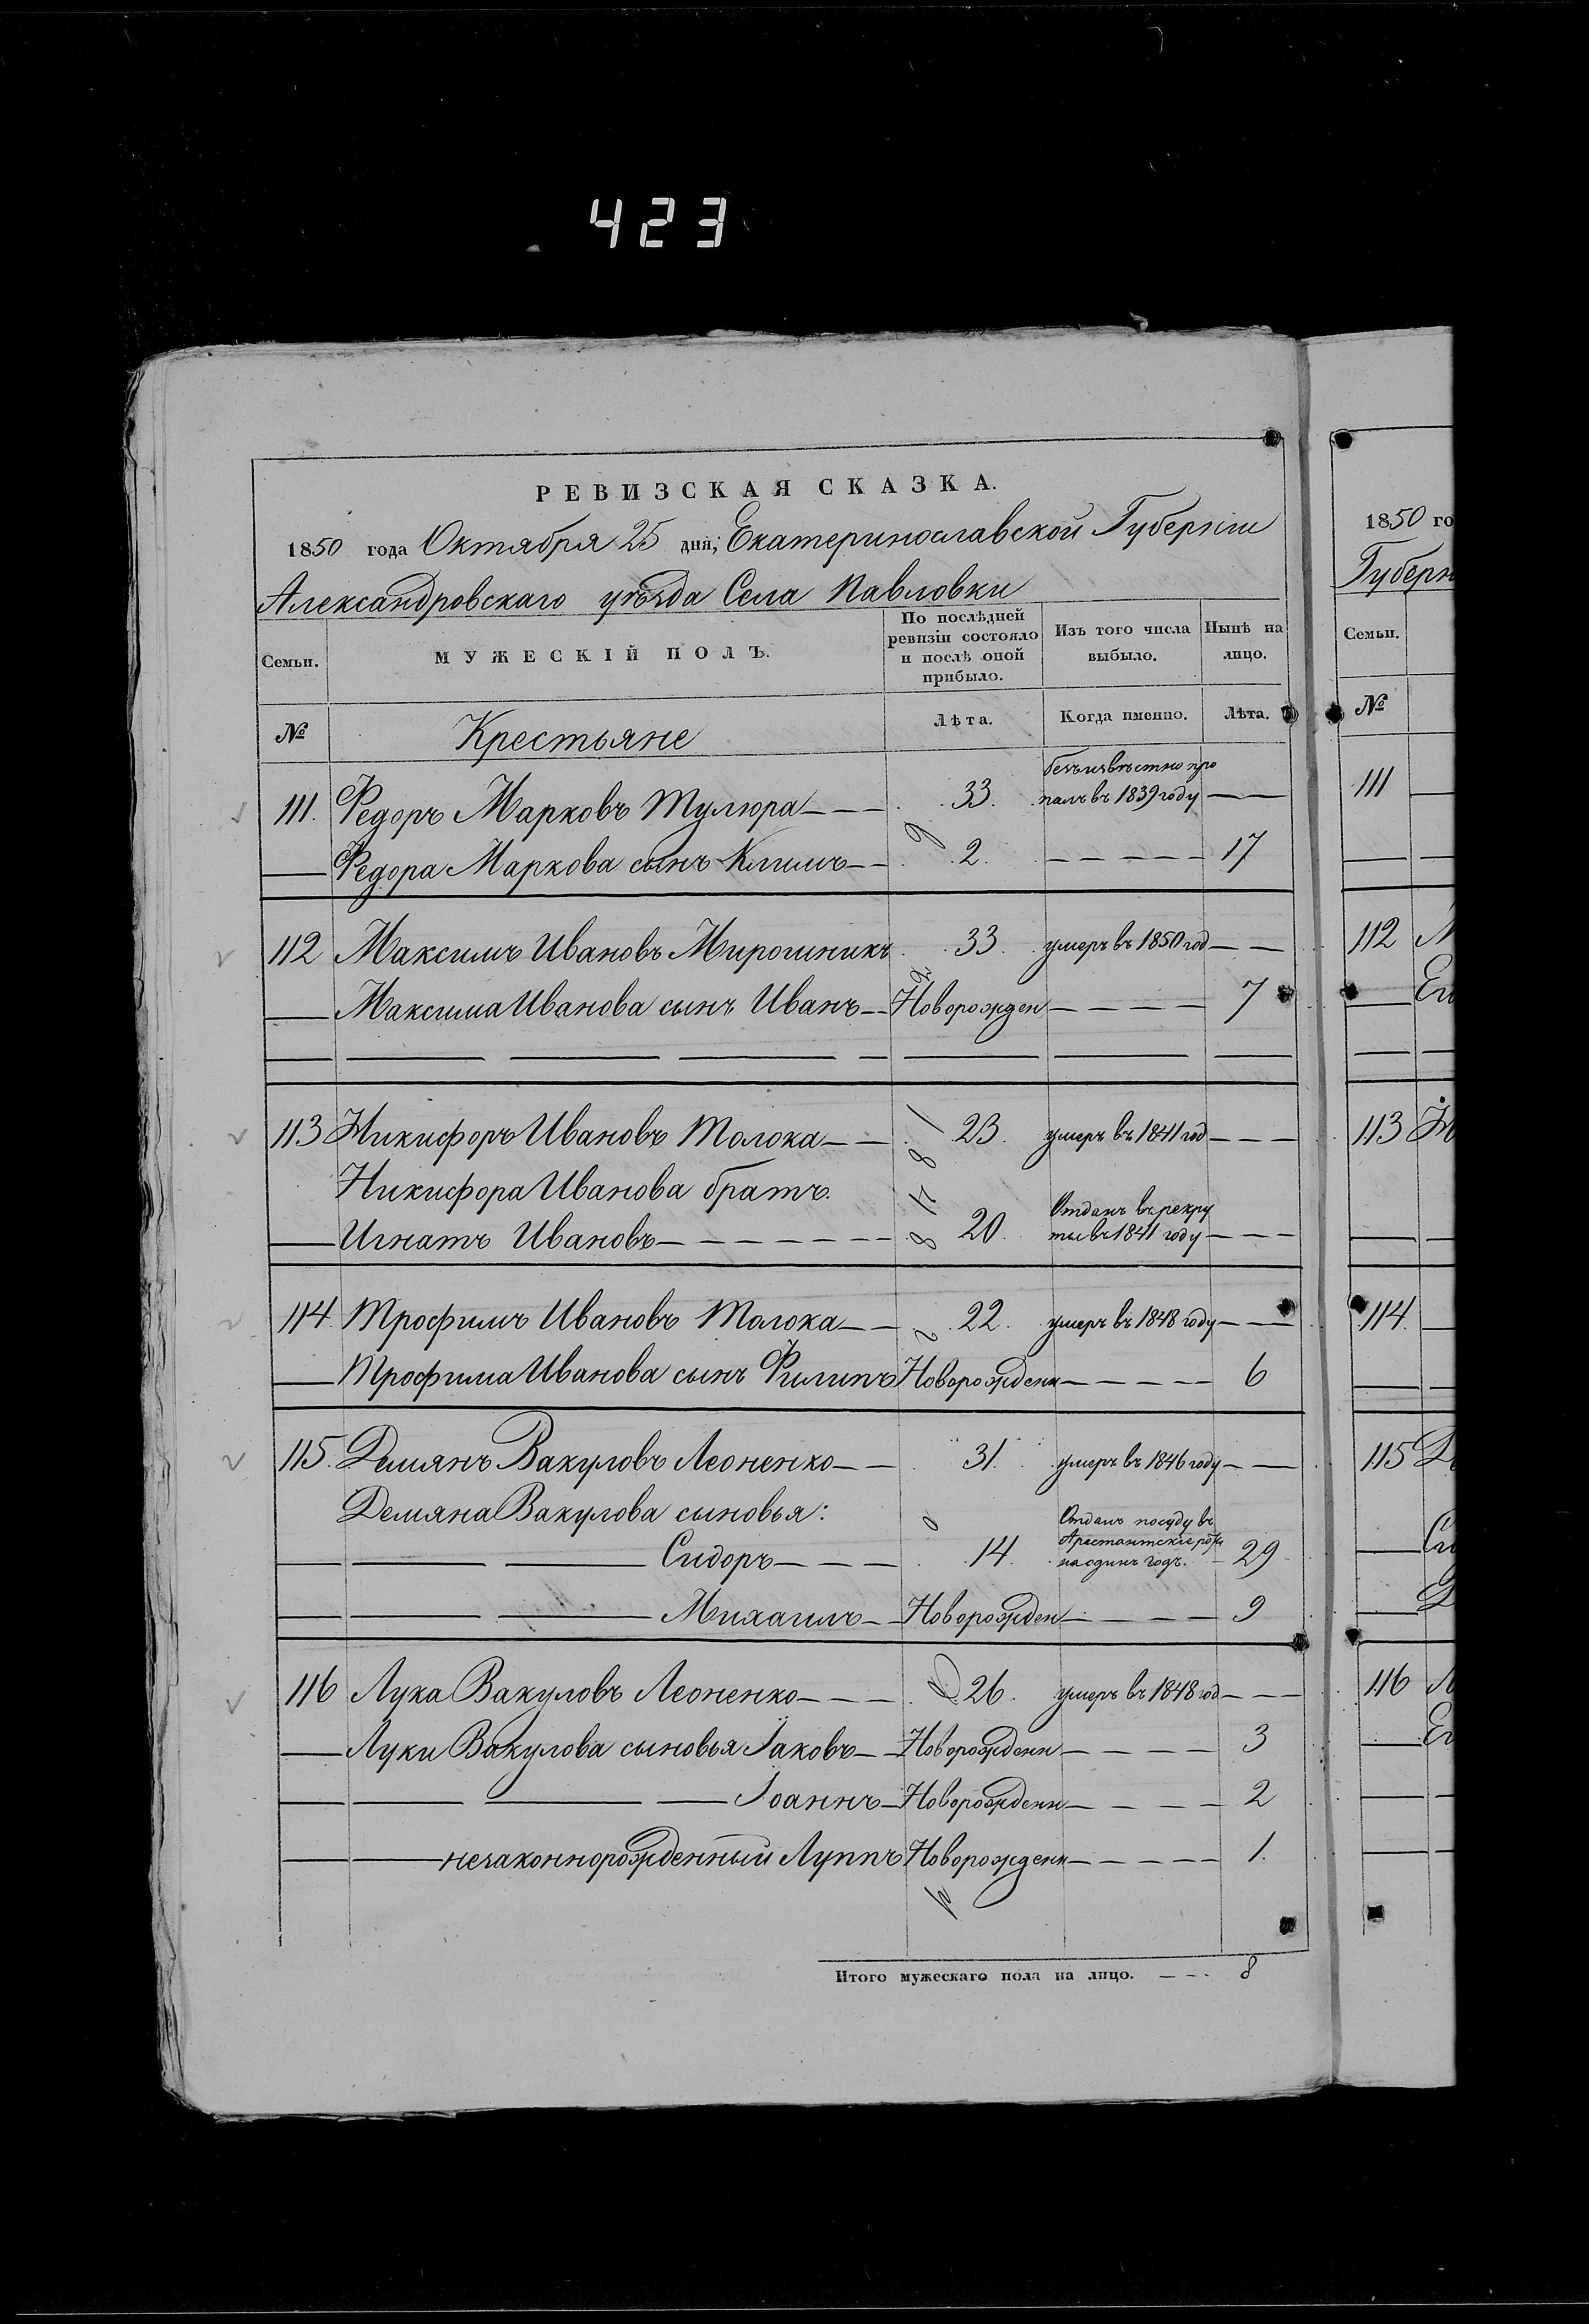 423
РЕВИЗСКАЯ СКАЗКА.
1850 года Октября 25 дня, Екатеринославской Губерніи
Александровскаго уѣзда Села Павловки
Семьи. МУЖЕСКІЙ ПОЛЪ. По послѣдней ревизіи состояло и послѣ оной прибыло. Изъ того числа выбыло. Нынѣ на лицо.
№ Крестьяне Лѣта. Когда именно. Лѣта.
111. Федоръ Марковъ Тулюра 33. безъизвѣстно про
палъ въ 1839 году
Федора Маркова сынъ Климъ 2. 17
112 Максимъ Ивановъ Мирошникъ 33. умеръ въ 1850 год
Максима Иванова сынъ Иванъ Новорожден 7
113 Никифоръ Ивановъ Толока 23. умеръ въ 1841 год
Никифора Иванова братъ.
Игнатъ Ивановъ 20. Отданъ въ рекру
ты въ 1841 году
114. Трофимъ Ивановъ Толока 22. умеръ въ 1848 году
Трофима Иванова сынъ Филипъ Новорожденн 6
115. Демянъ Вакуловъ Леоненко 31. умеръ въ 1846 году
Демяна Вакулова сыновья:
Сидоръ 14. Отданъ посуду въ
Арестантскіе роты
на одинъ годъ. 29
Михаилъ Новорожден 9
116 Лука Вакуловъ Леоненко 26. умеръ въ 1848 год
Луки Вакулова сыновья Іаковъ Новорожденн 3
Іоаннъ Новорожденн 2
незаконнорожденный Луппъ Новорожденн 1.
Итого мужескаго пола на лицо. 8
1850 го
Губерн
Семьи.
№
111
112 М
Ег
113
114.
115
116 Л
Ег